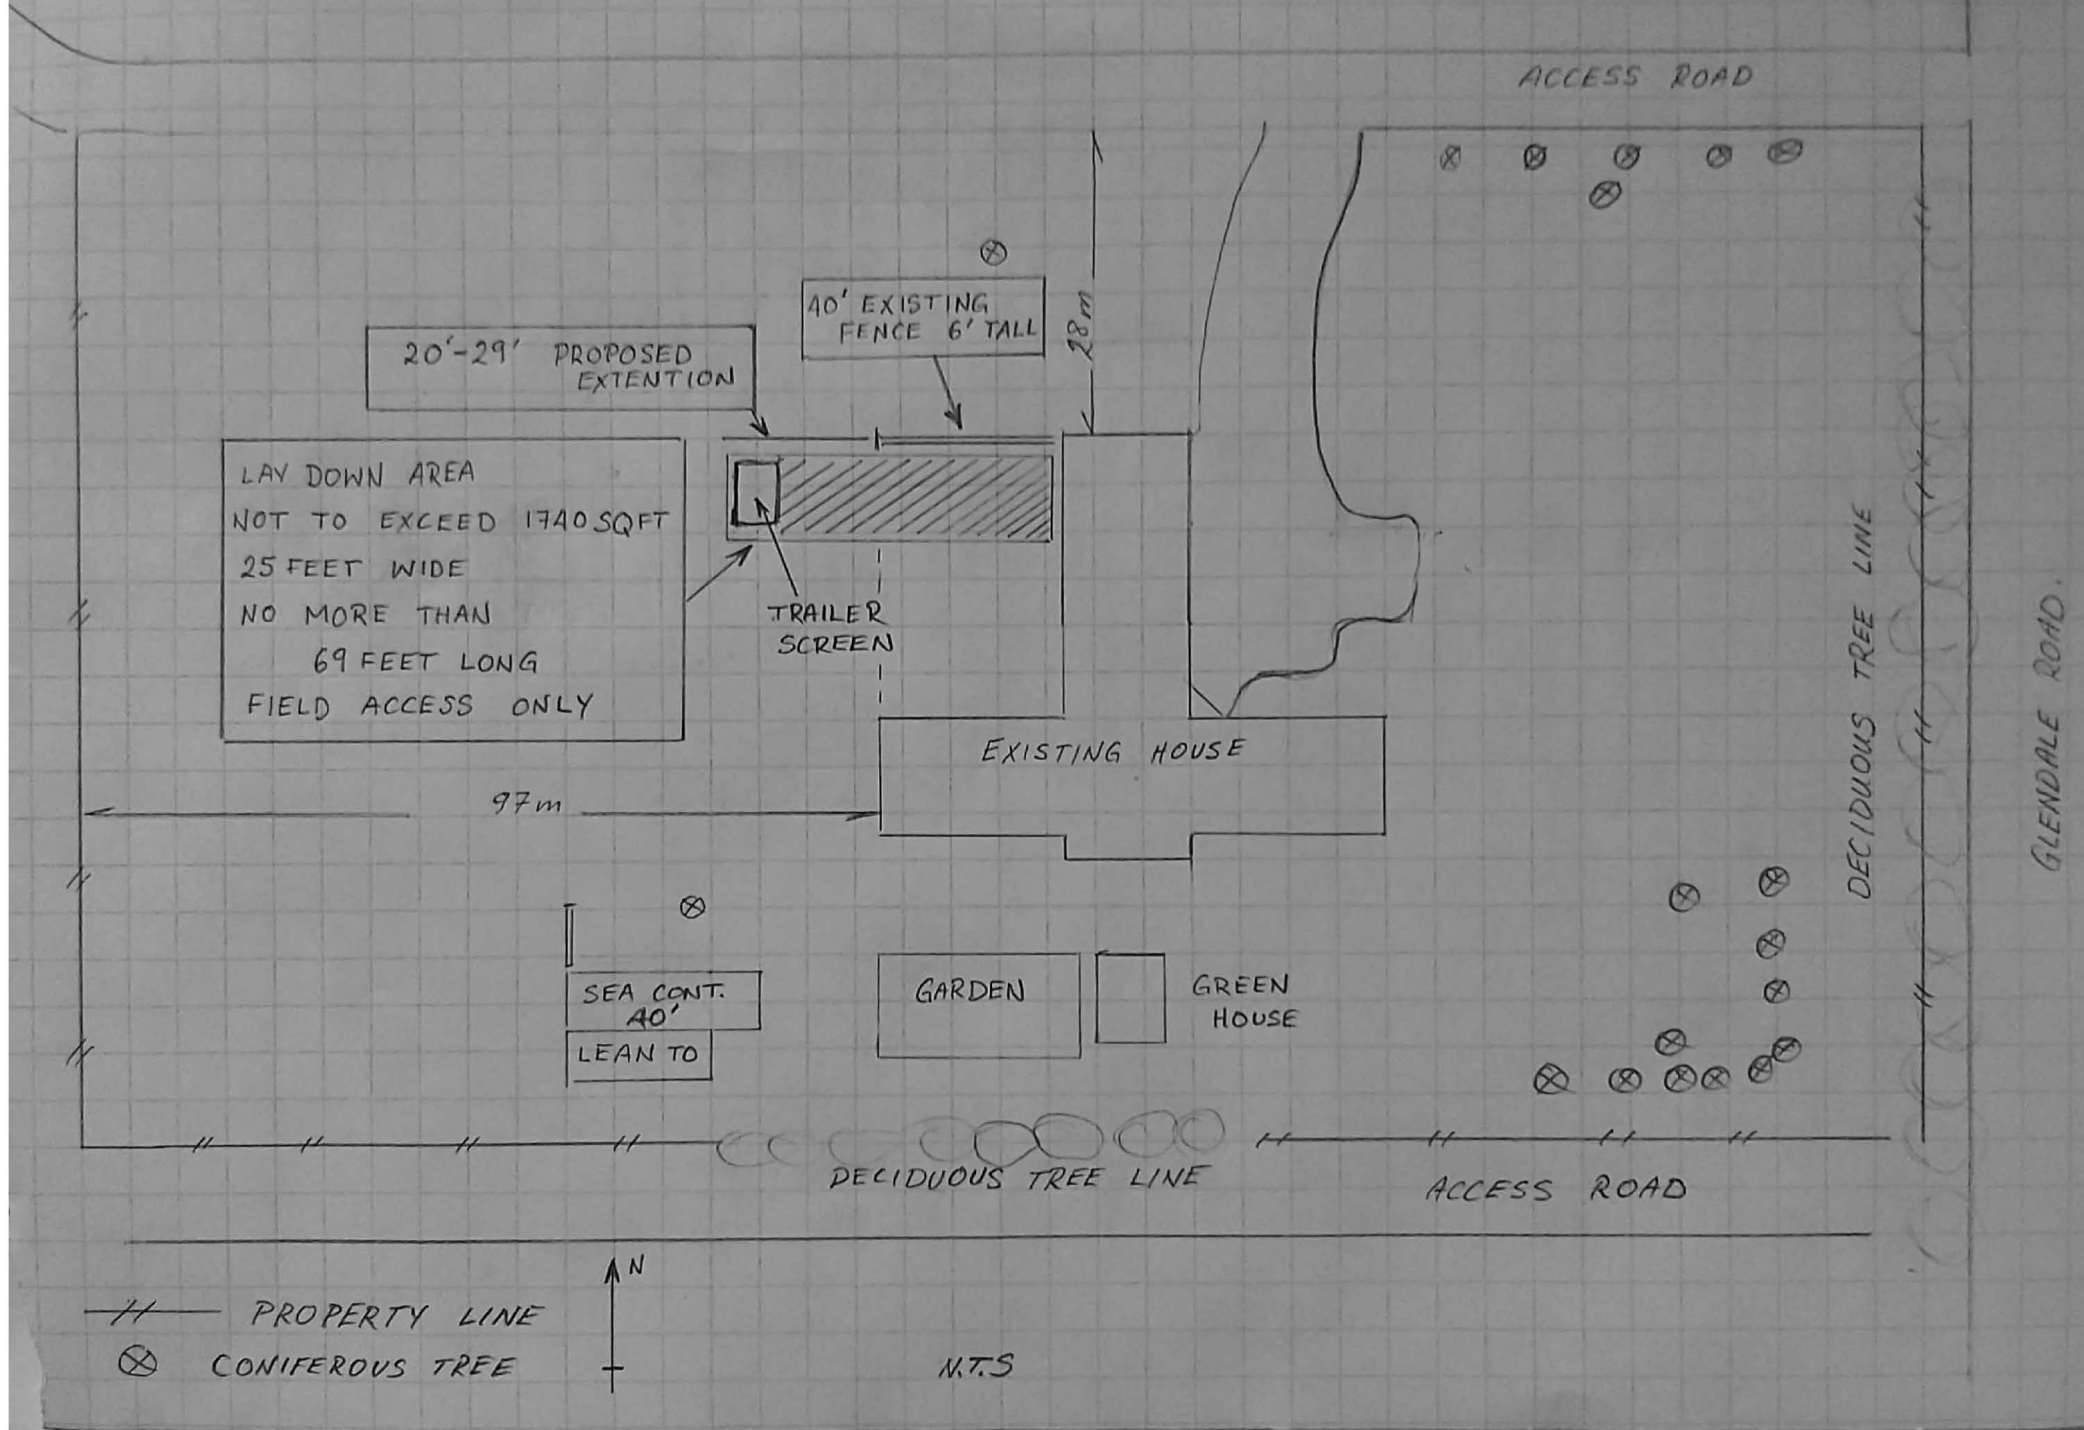 ACCESS ROAD
40' EXISTING
FENCE 6' TALL
28m
20'-29' PROPOSED
EXTENTION
LAY DOWN AREA
NOT TO EXCEED 1740 SQFT
25 FEET WIDE
NO MORE THAN
69 FEET LONG
FIELD ACCESS ONLY
TRAILER
SCREEN
EXISTING HOUSE
97m
DECIDUOUS TREE LINE
GLENDALE ROAD.
SEA CONT.
40'
LEAN TO
GARDEN
GREEN
HOUSE
DECIDUOUS TREE LINE
ACCESS ROAD
N
PROPERTY LINE
CONIFEROUS TREE
N.T.S